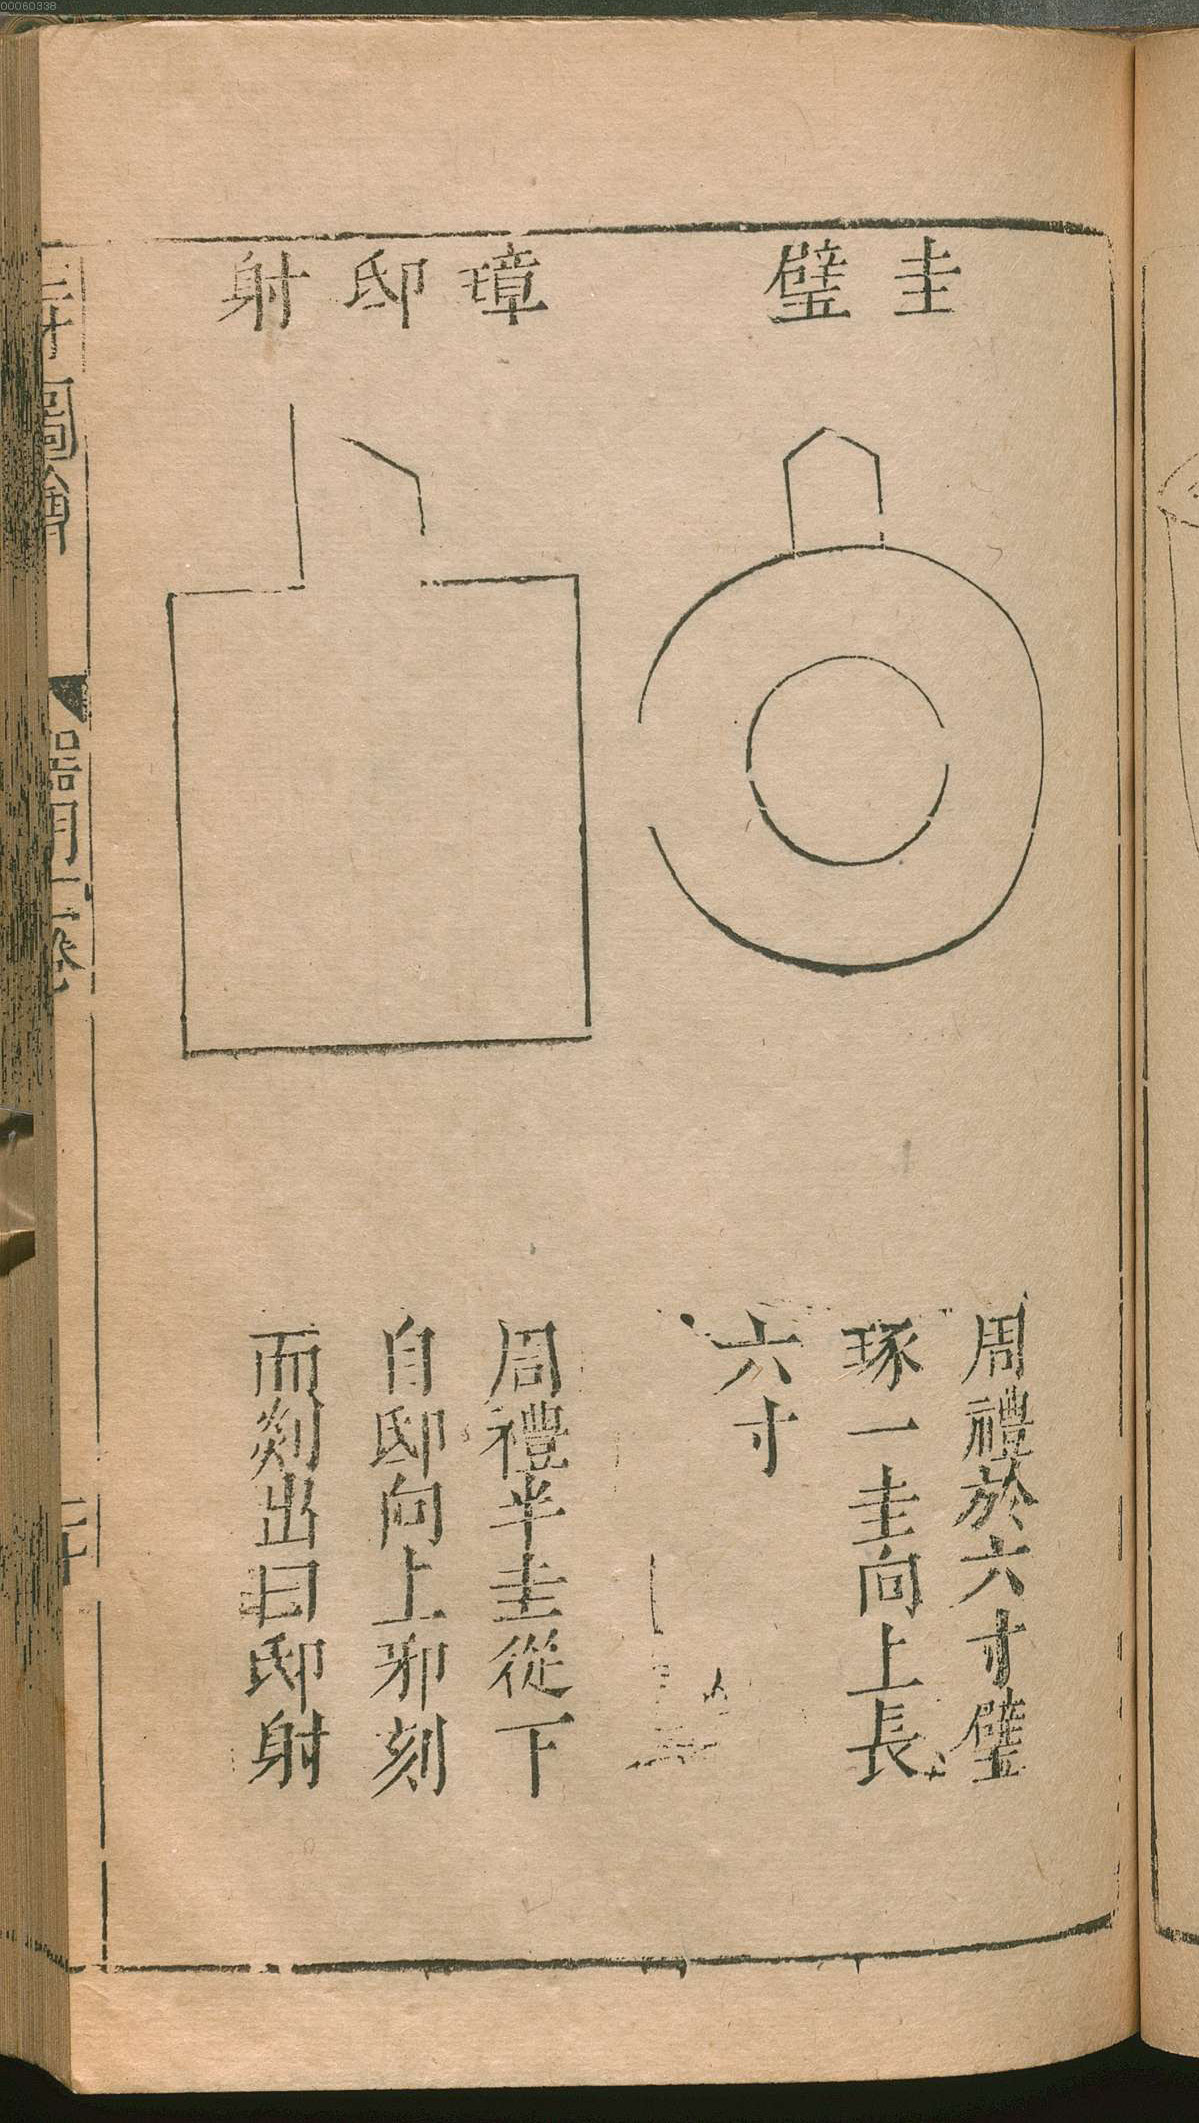 00060338
圭璧
周禮於六寸璧
琢一圭向上長
六寸
璋邸射
周禮半圭從下
自邸向上邪刻
而剡出曰邸射
圖會
器用二卷